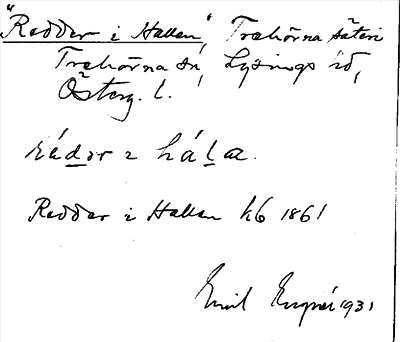 "Reddar i Hallen", Trehörna säteri
Trehörna sn, Lysings hd,
Österg. l.
rádər 2 hála.
Reddar i Hallen h6 1861
Emil 1931